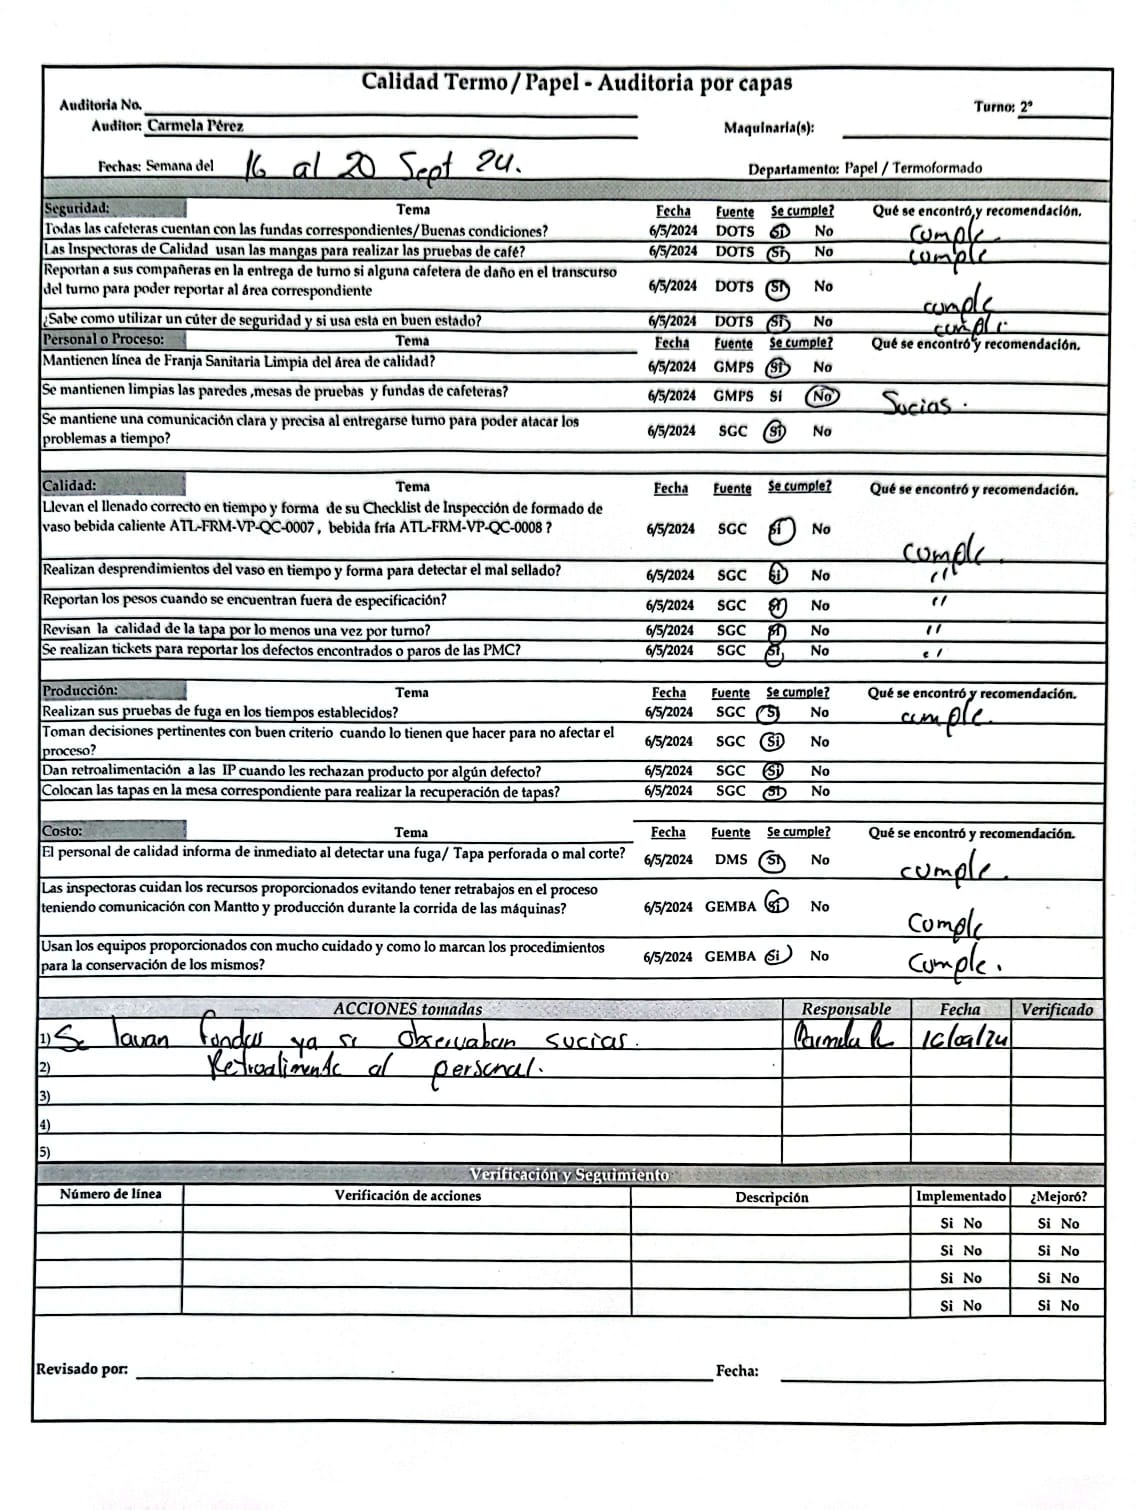 Calidad Termo / Papel - Auditoria por capas
Auditoria No.
Turno: 2°
Auditor: Carmela Pérez
Maquinaria(s):
Fechas: Semana del 16 al 20 Sept 24.
Departamento: Papel / Termoformado
Seguridad: Tema Fecha Fuente Se cumple? Qué se encontró y recomendación.
Todas las cafeteras cuentan con las fundas correspondientes/Buenas condiciones? 6/5/2024 DOTS Si No cumple
Las Inspectoras de Calidad usan las mangas para realizar las pruebas de café? 6/5/2024 DOTS Si No cumple
Reportan a sus compañeras en la entrega de turno si alguna cafetera de daño en el transcurso
del turno para poder reportar al área correspondiente 6/5/2024 DOTS Si No cumple
¿Sabe como utilizar un cúter de seguridad y si usa esta en buen estado? 6/5/2024 DOTS Si No cumple
Personal o Proceso: Tema Fecha Fuente Se cumple? Qué se encontró y recomendación.
Mantienen línea de Franja Sanitaria Limpia del área de calidad? 6/5/2024 GMPS Si No
Se mantienen limpias las paredes ,mesas de pruebas y fundas de cafeteras? 6/5/2024 GMPS Si No Sucias.
Se mantiene una comunicación clara y precisa al entregarse turno para poder atacar los
problemas a tiempo? 6/5/2024 SGC Si No
Calidad: Tema Fecha Fuente Se cumple? Qué se encontró y recomendación.
Llevan el llenado correcto en tiempo y forma de su Checklist de Inspección de formado de
vaso bebida caliente ATL-FRM-VP-QC-0007 , bebida fría ATL-FRM-VP-QC-0008 ? 6/5/2024 SGC Si No cumple
Realizan desprendimientos del vaso en tiempo y forma para detectar el mal sellado? 6/5/2024 SGC Si No "
Reportan los pesos cuando se encuentran fuera de especificación? 6/5/2024 SGC Si No "
Revisan la calidad de la tapa por lo menos una vez por turno? 6/5/2024 SGC Si No "
Se realizan tickets para reportar los defectos encontrados o paros de las PMC? 6/5/2024 SGC Si No "
Producción: Tema Fecha Fuente Se cumple? Qué se encontró y recomendación.
Realizan sus pruebas de fuga en los tiempos establecidos? 6/5/2024 SGC Si No cumple.
Toman decisiones pertinentes con buen criterio cuando lo tienen que hacer para no afectar el
proceso? 6/5/2024 SGC Si No
Dan retroalimentación a las IP cuando les rechazan producto por algún defecto? 6/5/2024 SGC Si No
Colocan las tapas en la mesa correspondiente para realizar la recuperación de tapas? 6/5/2024 SGC Si No
Costo: Tema Fecha Fuente Se cumple? Qué se encontró y recomendación.
El personal de calidad informa de inmediato al detectar una fuga/ Tapa perforada o mal corte? 6/5/2024 DMS Si No cumple.
Las inspectoras cuidan los recursos proporcionados evitando tener retrabajos en el proceso
teniendo comunicación con Mantto y producción durante la corrida de las máquinas? 6/5/2024 GEMBA Si No Cumple
Usan los equipos proporcionados con mucho cuidado y como lo marcan los procedimientos
para la conservación de los mismos? 6/5/2024 GEMBA Si No Cumple.
ACCIONES tomadas Responsable Fecha Verificado
1) Se lavan fundas ya se observaban sucias. Carmela 16/09/24
2) Retroalimento al personal.
3)
4)
5)
Verificación y Seguimiento
Número de línea Verificación de acciones Descripción Implementado ¿Mejoró?
Si No Si No
Si No Si No
Si No Si No
Si No Si No
Revisado por: Fecha: